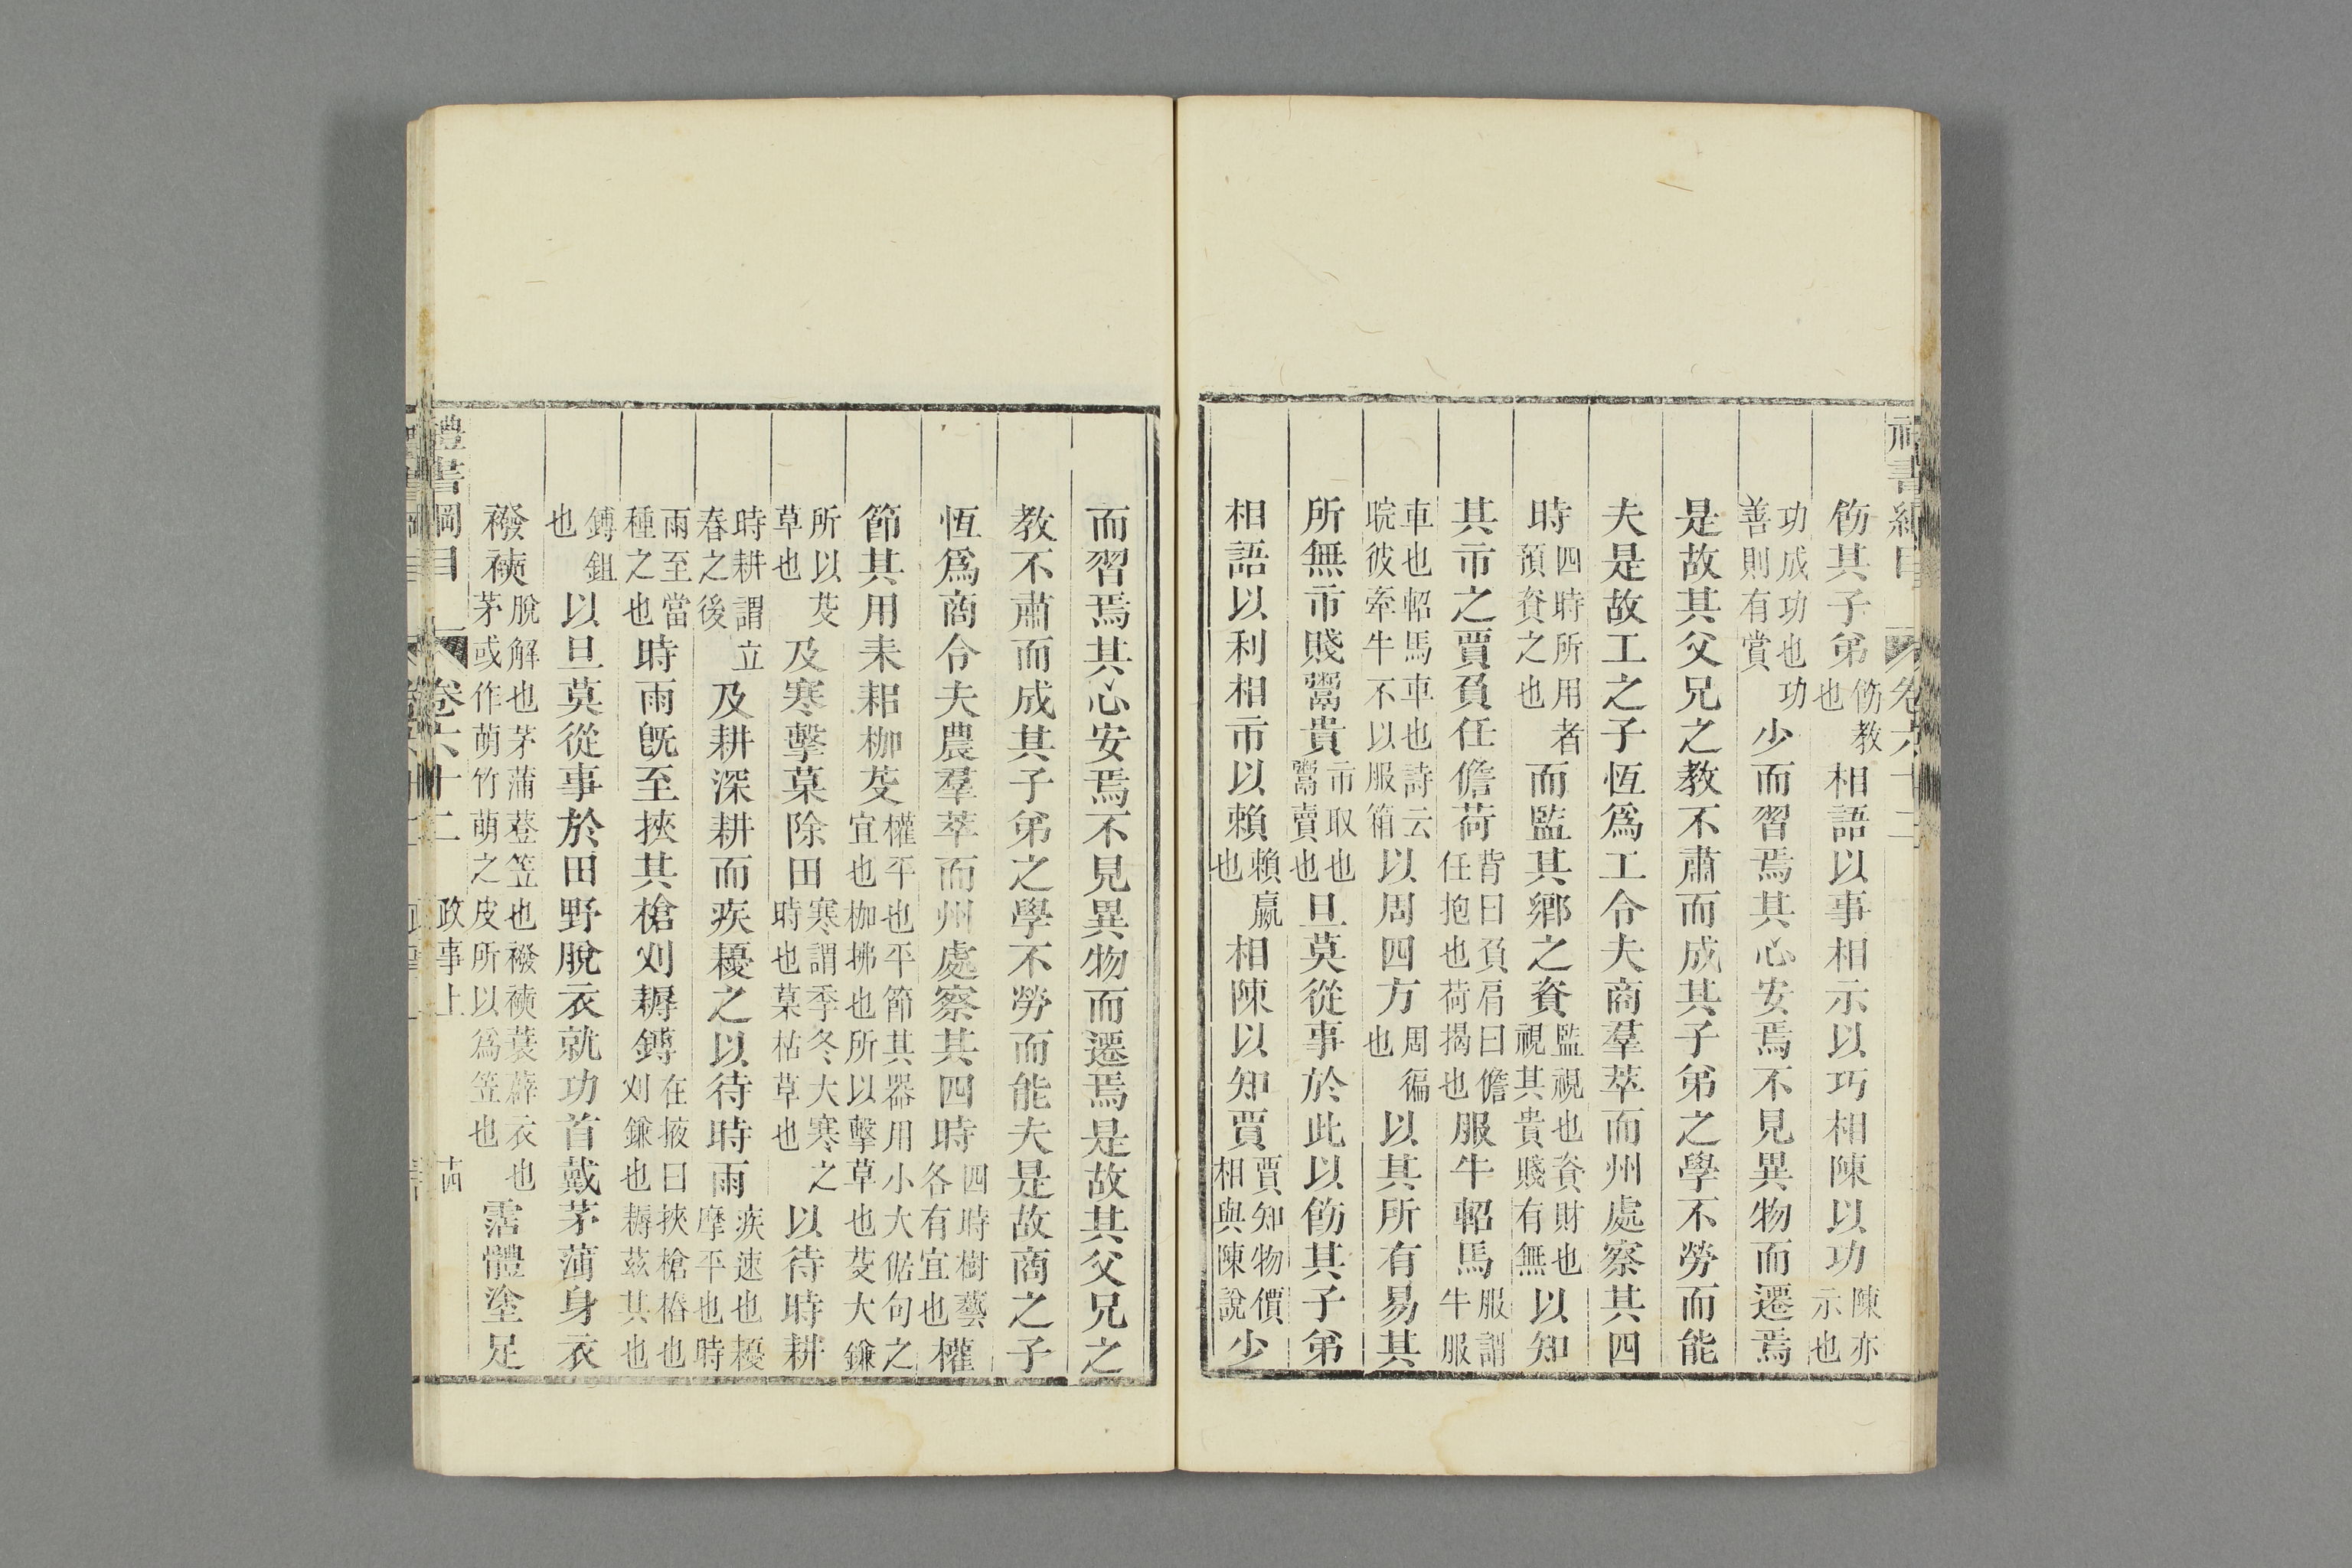 禮書綱目 卷六十二
飭其子弟飭教也相語以事相示以巧相陳以功陳亦示也
功成功也功善則有賞少而習焉其心安焉不見異物而遷焉
是故其父兄之教不肅而成其子弟之學不勞而能
夫是故工之子恆爲工令夫商羣萃而州處察其四
時四時所用者預資之也而監其鄉之資監視也資財也視其貴賤有無以知
其市之賈負任儋荷背曰負肩曰儋任抱也荷揭也服牛軺馬服謂牛服
車也軺馬車也詩云睆彼牽牛不以服箱以周四方周徧也以其所有易其
所無市賤鬻貴市取也鬻賣也旦莫從事於此以飭其子弟
相語以利相市以賴賴贏也相陳以知賈賈知物價相與陳說少
而習焉其心安焉不見異物而遷焉是故其父兄之
教不肅而成其子弟之學不勞而能夫是故商之子
恆爲商令夫農羣萃而州處察其四時四時樹藝各有宜也權
節其用耒耜枷芟權平也平節其器用小大倨句之宜也枷拂也所以擊草也芟大鐮
所以芟草也及寒擊菒除田寒謂季冬大寒之時也菒枯草也以待時耕
時耕謂立春之後及耕深耕而疾耰之以待時雨疾速也耰摩平也時
雨至當種之也時雨旣至挾其槍刈耨鎛在掖曰挾槍樁也刈鐮也耨茲其也
鎛鉏也以旦莫從事於田野脫衣就功首戴茅蒲身衣
襏襫脫解也茅蒲簦笠也襏襫蓑薜衣也茅或作萌竹萌之皮所以爲笠也霑體塗足
禮書綱目 卷六十二 政事上 古